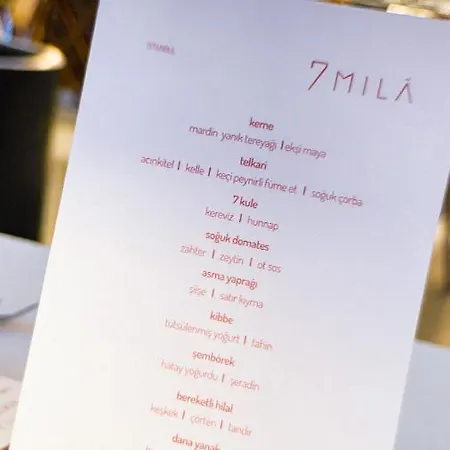 ISTANBUL
7MILÁ
keme
mardin yanık tereyağı | ekşi maya
telkari
acınkitel | kelle | keçi peynirli füme et | soğuk çorba
7 kule
kereviz | hunnap
soğuk domates
zahter | zeytin | ot sos
asma yaprağı
şişe | satır kıyma
kibbe
tütsülenmiş yoğurt | tahin
şembörek
hatay yoğurdu | şeradin
bereketli hilal
keşkek | çörten | tandır
dana yanak